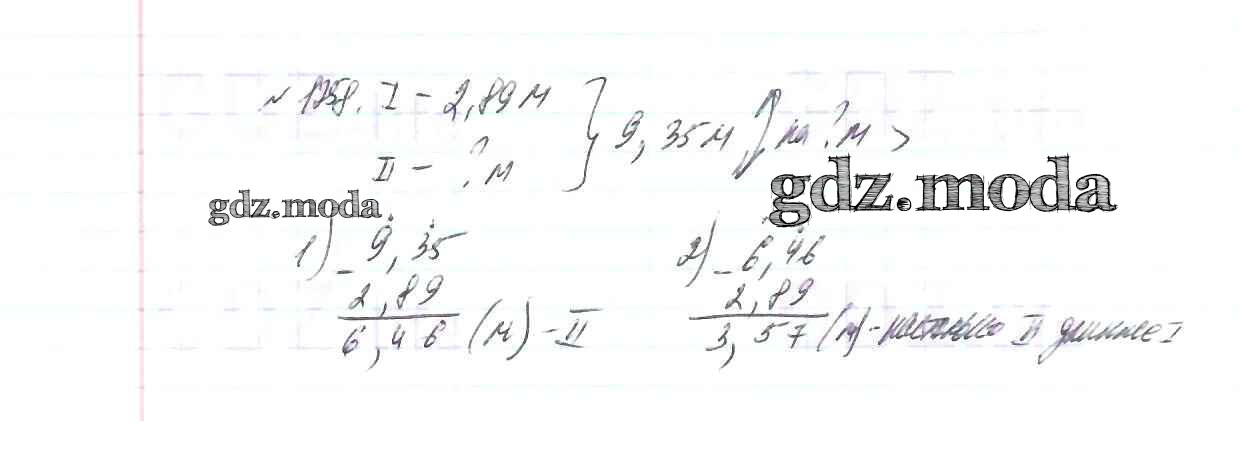 № 1258. I – 2,89 м
II – ? м
} 9,35 м на ? м >
gdz.moda
gdz.moda.
1) – 9,35
2,89
6,46 (м) – II
2) – 6,46
2,89
3,57 (м) – настолько II длиннее I